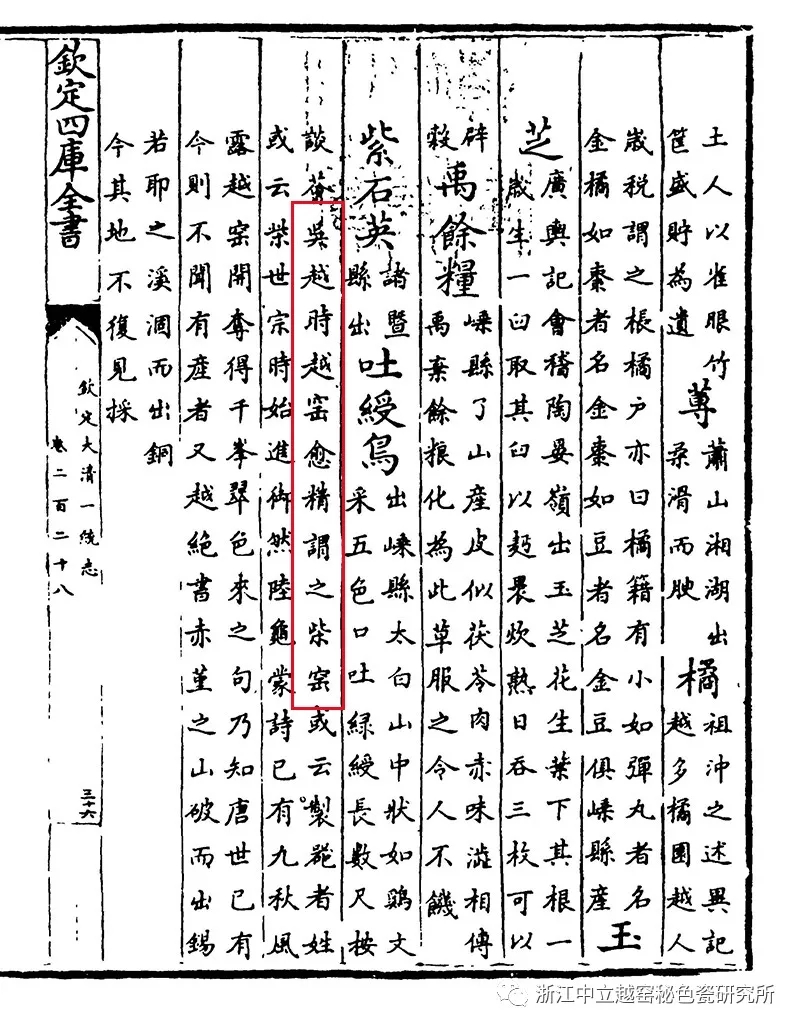 土人以雀眼竹
筐盛貯為遺
蓴
蕭山湘湖出
柔滑而腴
橘
祖沖之述異記
越多橘園越人
歲税謂之棖橘户亦曰橘籍有小如彈丸者名
金橘如棗者名金棗如豆者名金豆俱嵊縣產
玉
芝
廣輿記會稽陶晏嶺出玉芝花生葉下其根一
歲生一臼取其臼以麪裹炊熟日吞三枚可以
辟
穀
禹餘糧
嵊縣了山產皮似茯苓肉赤味澁相傳
禹棄餘粮化為此草服之令人不饑
紫石英
諸暨
縣出
吐綬鳥
出嵊縣太白山中狀如鷄文
采五色口吐緑綬長數尺按
談薈吳越時越窑愈精謂之柴窑或云製器者姓
或云柴世宗時始進御然陸龜蒙詩已有九秋風
露越窑開奪得千峯翠色來之句乃知唐世已有
今則不聞有產者又越絶書赤堇之山破而出錫
若耶之溪涸而出銅
今其地不復見採
欽定四庫全書
欽定大清一統志
卷二百二十八
三十六
浙江中立越窑秘色瓷研究所